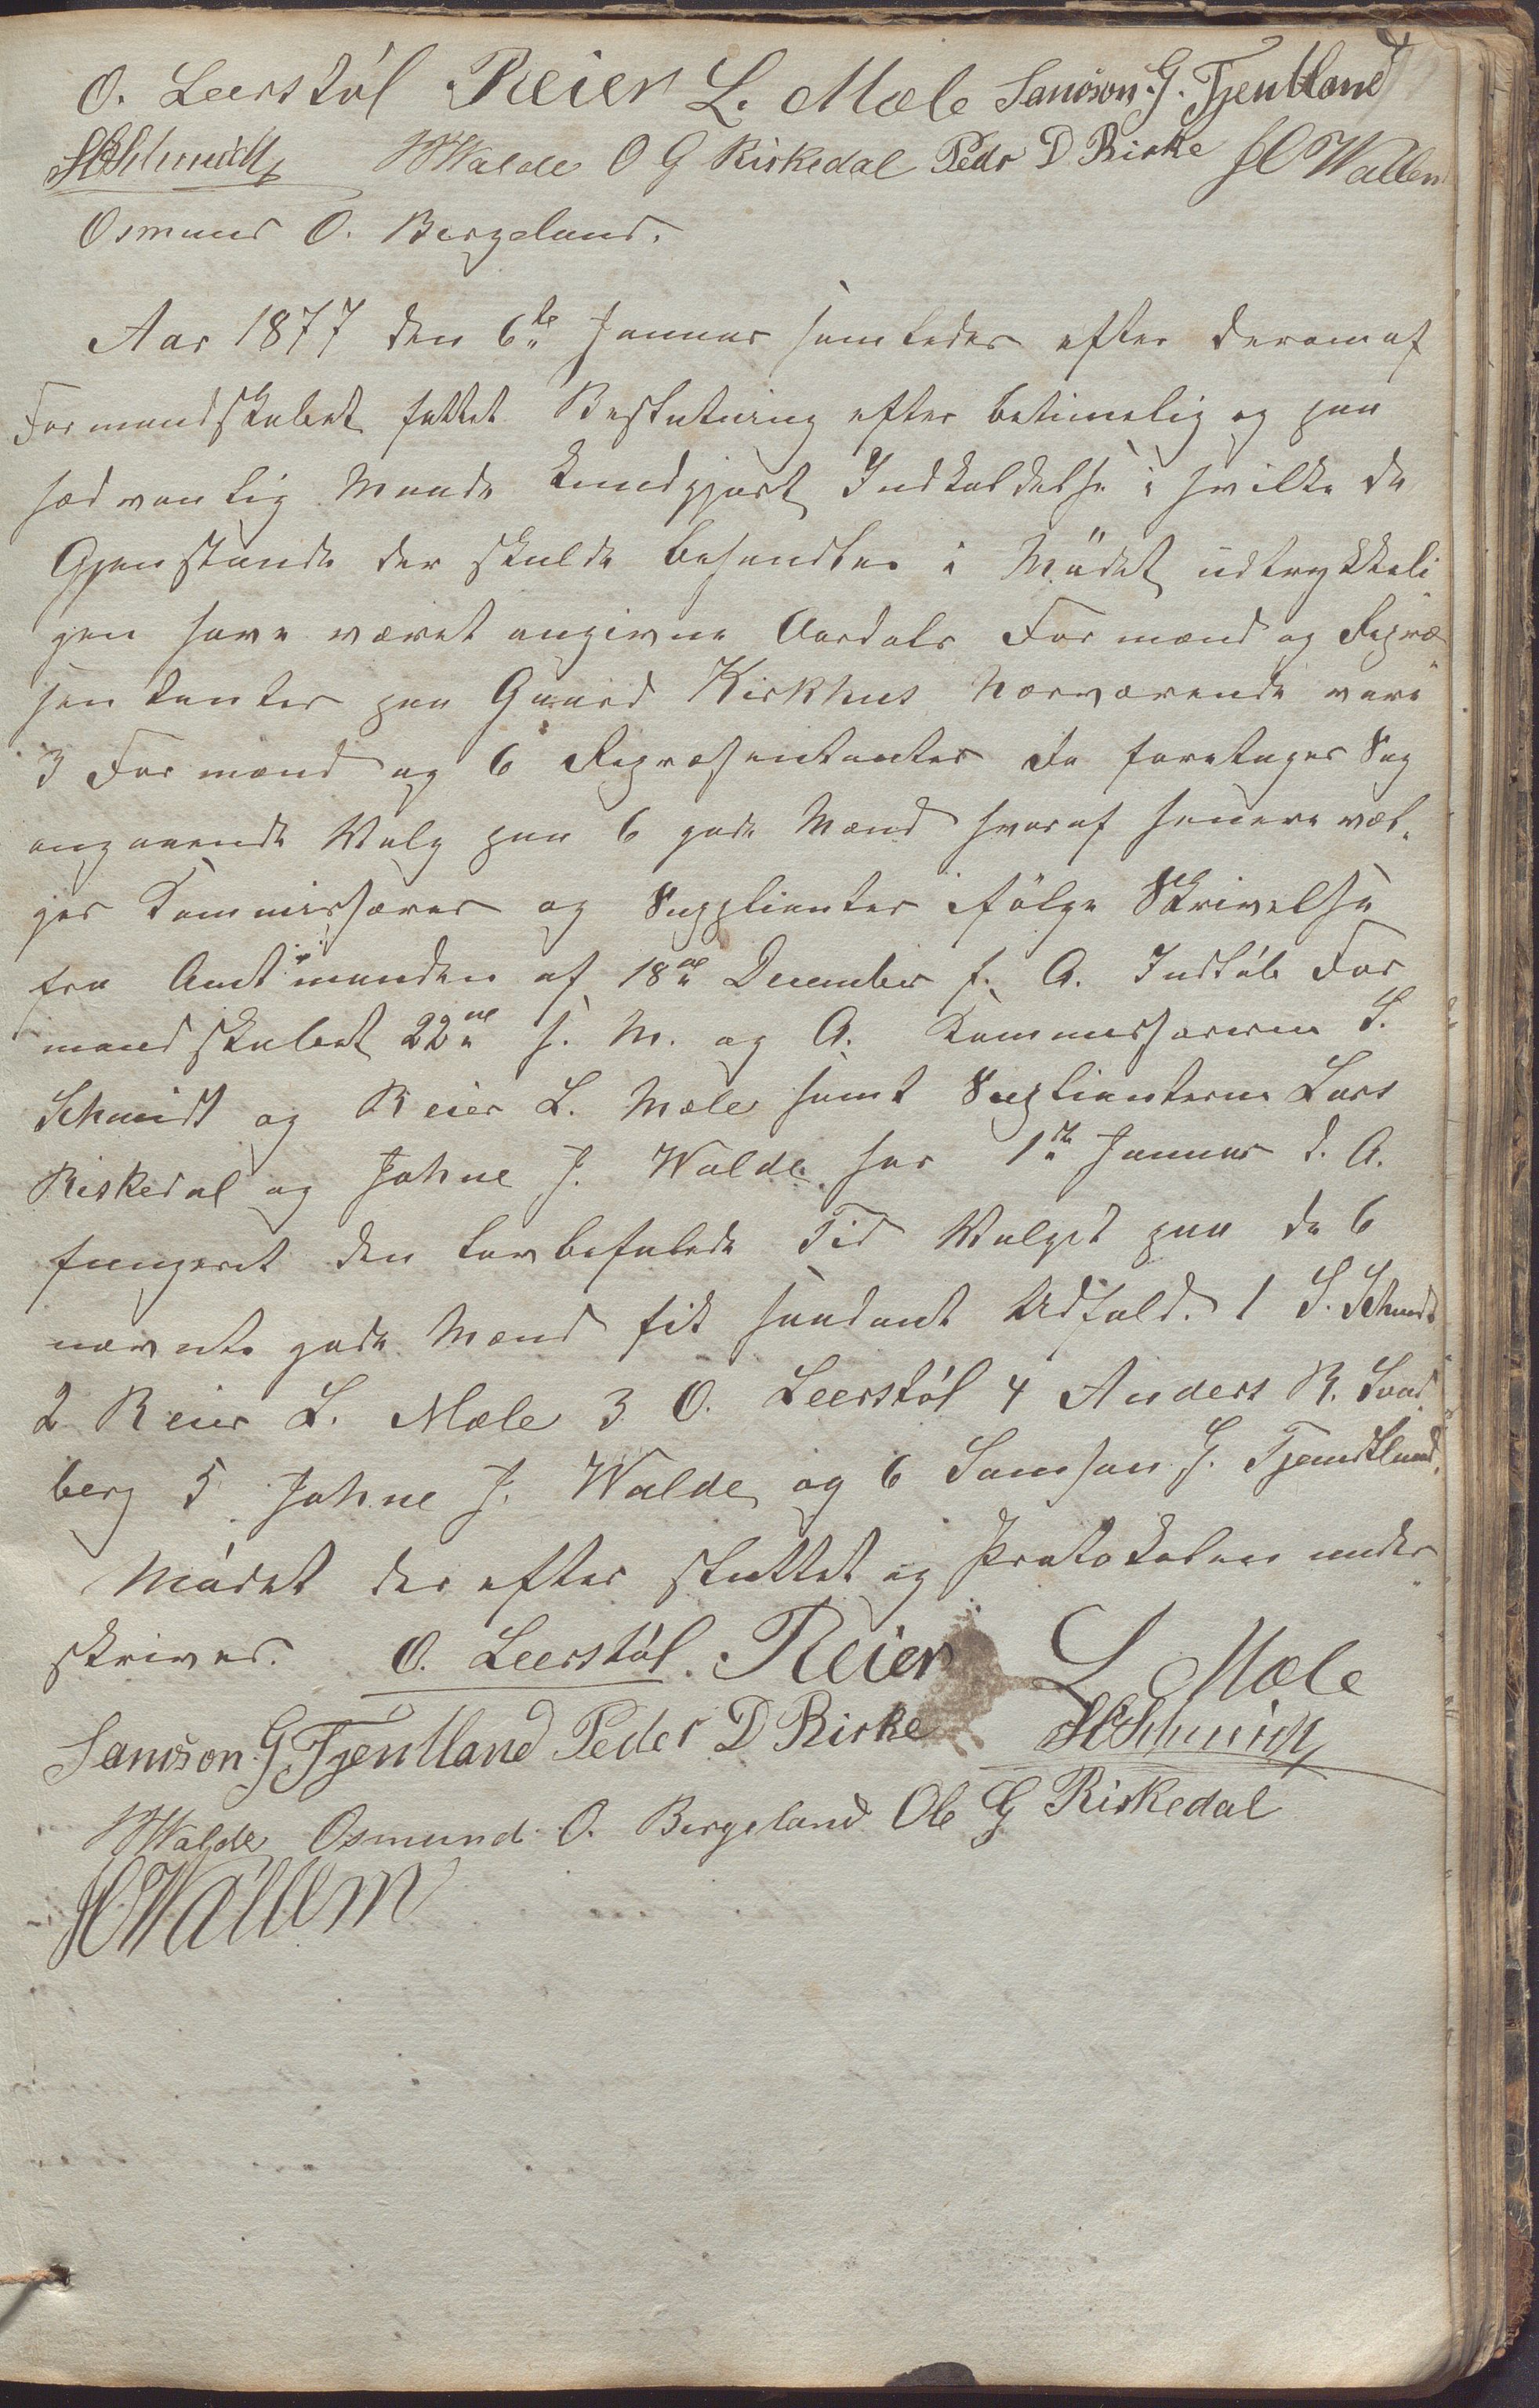 O. Leerstøl Reier L. Mæle Samson. G. Tjentland
S Schmidt JJWalde O G Riskedal Peder D Birke HO Wallem
Osmund O. Bergeland.
Aar 1877 den 6te Januar samledes efter derom af
Formandskabet fattet Beslutning efter betimelig og paa
sædvanlig Maade kundgjort Indkaldelse i hvilke de
Gjenstande der skulde behandles i Mödet udtrykkeli
gen have været angivne Aardals Formænd og Repræ
sentanter paa Gaard Kirkhus Nærværende vare
3 Formænd og 6 Repræsentanter Da foretages Sag
angaaende Valg paa 6 gode Mænd hvoraf senere væl-
ges Kommissærer og Suplianter ifölge Skrivelse
fra Amtmanden af 18de December f. A. Indkøb For
mandskabet 22de s. M. og A. Kommissærerne S.
Schmidt og Reier L. Mæle samt Suplianterne Lars
Riskedal og Johne J. Walde har 1te Januar d. A.
fungeret den lovbefalede Tid Valget paa de 6
nævnte gode Mænd fik saadant Udfald. 1 S. Schmidt
2 Reier L. Mæle 3 O. Leerstøl 4 Anders R. Svad
berg 5 Johne J. Walde og 6 Samson G. Tjendtland.
Mødet derefter sluttet og Protokolen under
skrives. O. Leerstøl. Reier L Mæle
Samson. G. Tjentland Peder D Birke S Schmidt
JJWalde Osmund O. Bergeland Ole G Riskedal
HO Wallem